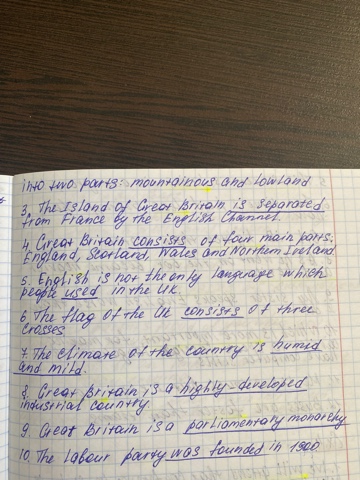 into two parts: mountainous and lowland
3. The Island of Great Britain is separated
from France by the English Channel.
4. Great Britain consists of four main parts:
England, Scotland, Wales and Northern Ireland
5. English is not the only language which
people used in the UK
6. The flag of the UK consists of three
crosses
7. The climate of the country is humed
and mild.
8. Great Britain is a highly-developed
industrial country.
9. Great Britain is a parliamentary monarchy
10. The labour party was founded in 1900.